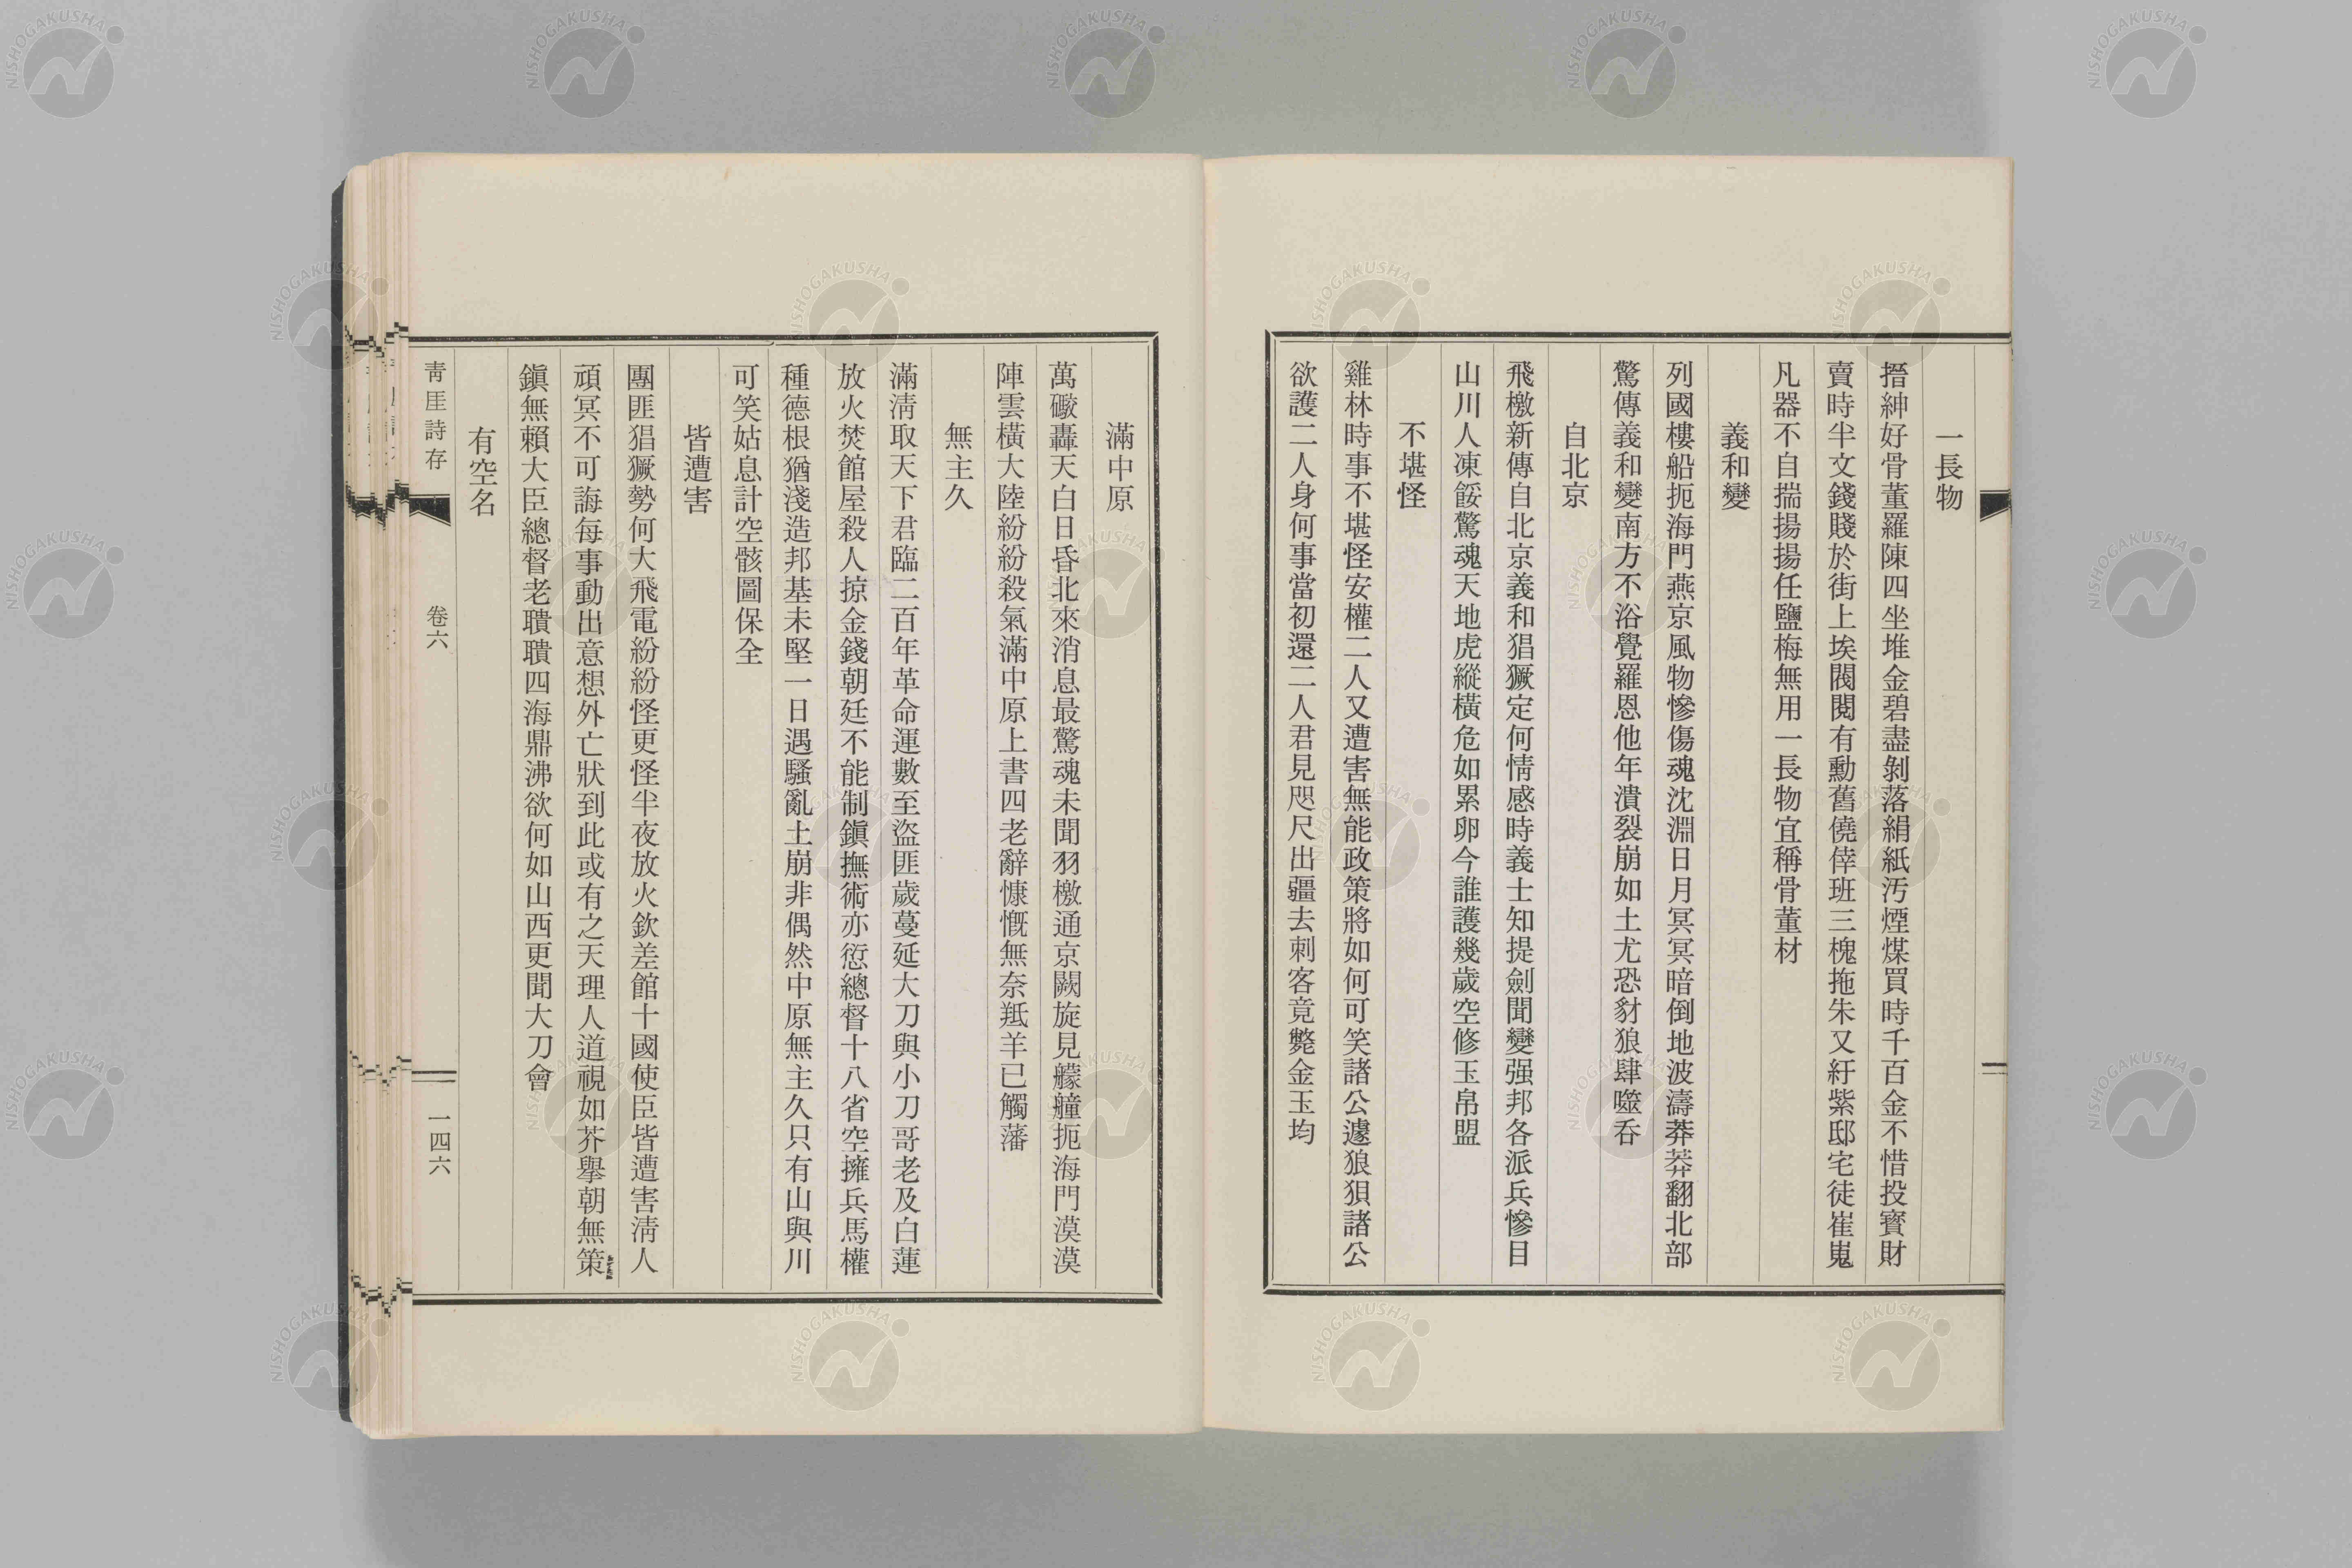 一長物
搢紳好骨董羅陳四坐堆金碧盡剝落絹紙汚煙煤買時千百金不惜投寳財
賣時半文錢賤於街上埃閥閱有勳舊僥倖班三槐拖朱又紆紫邸宅徒崔嵬
凡器不自揣揚揚任鹽梅無用一長物宜稱骨董材
義和變
列國樓船扼海門燕京風物慘傷魂沈淵日月冥冥暗倒地波濤莽莽翻北部
驚傳義和變南方不浴覺羅恩他年潰裂崩如土尤恐豺狼肆噬吞
自北京
飛檄新傳自北京義和猖獗定何情感時義士知提劍聞變强邦各派兵慘目
山川人凍餒驚魂天地虎縱橫危如累卵今誰護幾歲空修玉帛盟
不堪怪
雞林時事不堪怪安權二人又遭害無能政策將如何可笑諸公遽狼狽諸公
欲護二人身何事當初還二人君見咫尺出疆去刺客竟斃金玉均
滿中原
萬礮轟天白日昏北來消息最驚魂未聞羽檄通京闕旋見艨艟扼海門漠漠
陣雲橫大陸紛紛殺氣滿中原上書四老辭慷慨無奈羝羊已觸藩
無主久
滿淸取天下君臨二百年革命運數至盜匪歲蔓延大刀與小刀哥老及白蓮
放火焚館屋殺人掠金錢朝廷不能制鎭撫術亦愆總督十八省空擁兵馬權
種德根猶淺造邦基未堅一日遇騷亂土崩非偶然中原無主久只有山與川
可笑姑息計空骸圖保全
皆遭害
團匪猖獗勢何大飛電紛紛怪更怪半夜放火欽差館十國使臣皆遭害淸人
頑冥不可誨每事動出意想外亡狀到此或有之天理人道視如芥擧朝無策
鎭無賴大臣總督老聵聵四海鼎沸欲何如山西更聞大刀會
有空名
靑厓詩存
卷六
一四六
NISHOGAKUSHA